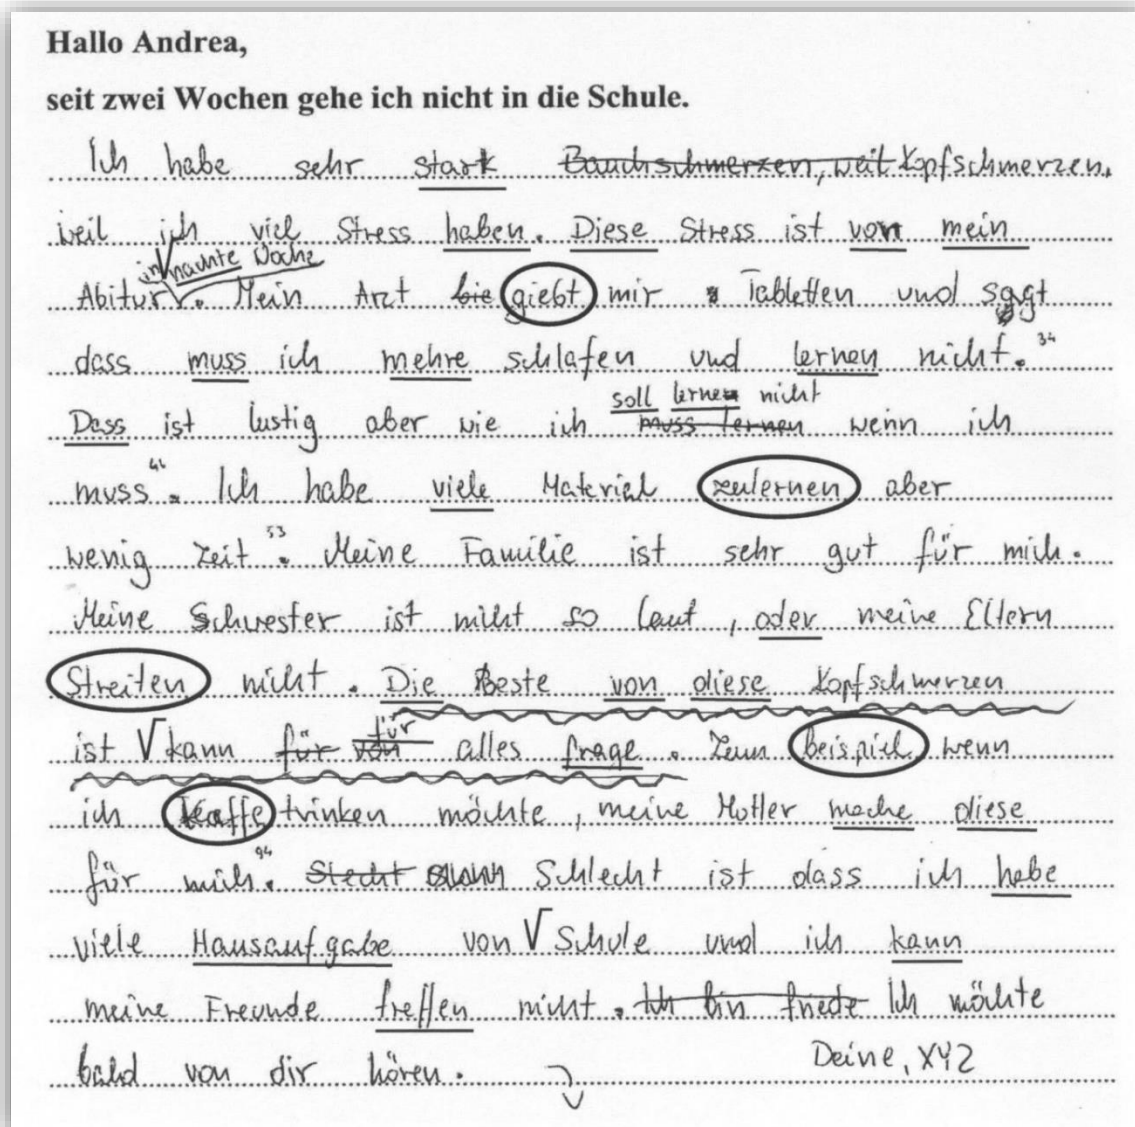 Hallo Andrea,
seit zwei Wochen gehe ich nicht in die Schule.
Ich habe sehr stark Bauchschmerzen, weil Kopfschmerzen,
weil ich viel Stress haben. Diese Stress ist von mein
in nächte Woche
Abitur √. Mein Arzt bie giebt mir Tabletten und sagt
dass muss ich mehre schlafen und lernen nicht. 34
soll lernen nicht
Dass ist lustig aber wie ich muss lernen wenn ich
muss 44. Ich habe viele Material zulernen aber
wenig Zeit 53. Meine Familie ist sehr gut für mich.
Meine Schwester ist nicht so laut, oder meine Eltern
Streiten nicht. Die Beste von diese Kopfschmerzen
für
ist √ kann für von alles frage. Zum beispiel wenn
ich Kaffe trinken möchte, meine Mutter mache diese
für mich. 94 Stecht Schlecht ist dass ich habe
viele Hausaufgabe von √ Schule und ich kann
meine Freunde treffen nicht. Ich bin friede Ich möchte
bald von dir hören.
Deine, XYZ